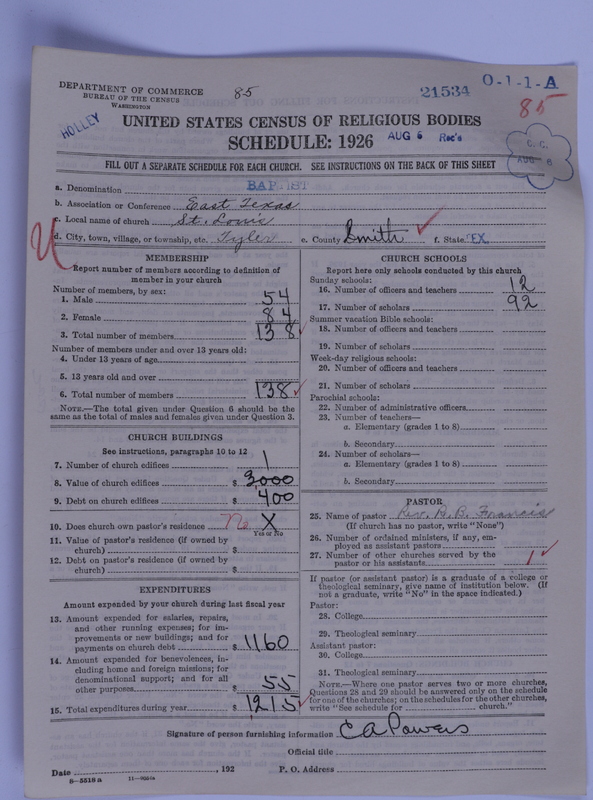 DEPARTMENT OF COMMERCE
BUREAU OF THE CENSUS
WASHINGTON
85
21534
O-1-1-A
85
HOLLEY
UNITED STATES CENSUS OF RELIGIOUS BODIES
SCHEDULE: 1926
AUG 6 Rec'd
C. C.
AUG 6
FILL OUT A SEPARATE SCHEDULE FOR EACH CHURCH. SEE INSTRUCTIONS ON THE BACK OF THIS SHEET
a. Denomination BAPTIST
b. Association or Conference East Texas
c. Local name of church St. Louis
d. City, town, village, or township, etc. Tyler e. County Smith f. State TEX.
U
MEMBERSHIP
Report number of members according to definition of
member in your church
Number of members, by sex:
1. Male 54
2. Female 84
3. Total number of members 138
Number of members under and over 13 years old:
4. Under 13 years of age
5. 13 years old and over
6. Total number of members 138
NOTE.—The total given under Question 6 should be the
same as the total of males and females given under Question 3.
CHURCH BUILDINGS
See instructions, paragraphs 10 to 12
7. Number of church edifices 1
8. Value of church edifices $ 3,000
9. Debt on church edifices $ 400
10. Does church own pastor's residence No X
Yes or No
11. Value of pastor's residence (if owned by
church) $
12. Debt on pastor's residence (if owned by
church) $
EXPENDITURES
Amount expended by your church during last fiscal year
13. Amount expended for salaries, repairs,
and other running expenses; for im-
provements or new buildings; and for
payments on church debt $ 1160
14. Amount expended for benevolences, in-
cluding home and foreign missions; for
denominational support; and for all
other purposes $ 55
15. Total expenditures during year $ 1215
CHURCH SCHOOLS
Report here only schools conducted by this church
Sunday schools:
16. Number of officers and teachers 12
17. Number of scholars 92
Summer vacation Bible schools:
18. Number of officers and teachers
19. Number of scholars
Week-day religious schools:
20. Number of officers and teachers
21. Number of scholars
Parochial schools:
22. Number of administrative officers
23. Number of teachers—
a. Elementary (grades 1 to 8)
b. Secondary
24. Number of scholars—
a. Elementary (grades 1 to 8)
b. Secondary
PASTOR
25. Name of pastor Rev. B. B. Francis
(If church has no pastor, write "None")
26. Number of ordained ministers, if any, em-
ployed as assistant pastors
27. Number of other churches served by the
pastor or his assistants 1
If pastor (or assistant pastor) is a graduate of a college or
theological seminary, give name of institution below. (If
not a graduate, write "No" in the space indicated.)
Pastor:
28. College
29. Theological seminary
Assistant pastor:
30. College
31. Theological seminary
NOTE.—Where one pastor serves two or more churches,
Questions 28 and 29 should be answered only on the schedule
for one of the churches; on the schedules for the other churches,
write "See schedule for church."
Signature of person furnishing information C A Powers
Official title
Date , 192 P. O. Address
8-5518 a